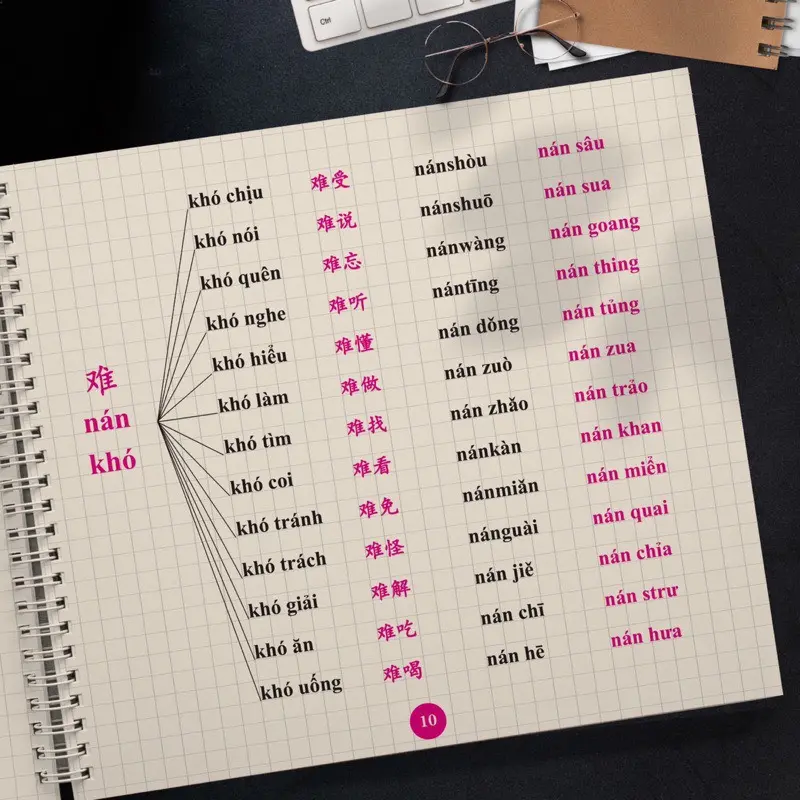 Ctrl
khó chịu 难受 nánshòu nán sâu
khó nói 难说 nánshuō nán sua
khó quên 难忘 nánwàng nán goang
khó nghe 难听 nántīng nán thing
khó hiểu 难懂 nán dǒng nán tủng
khó làm 难做 nán zuò nán zua
khó tìm 难找 nán zhǎo nán trảo
khó coi 难看 nánkàn nán khan
khó tránh 难免 nánmiǎn nán miển
khó trách 难怪 nánguài nán quai
khó giải 难解 nán jiě nán chỉa
khó ăn 难吃 nán chī nán strư
khó uống 难喝 nán hē nán hưa
难
nán
khó
10